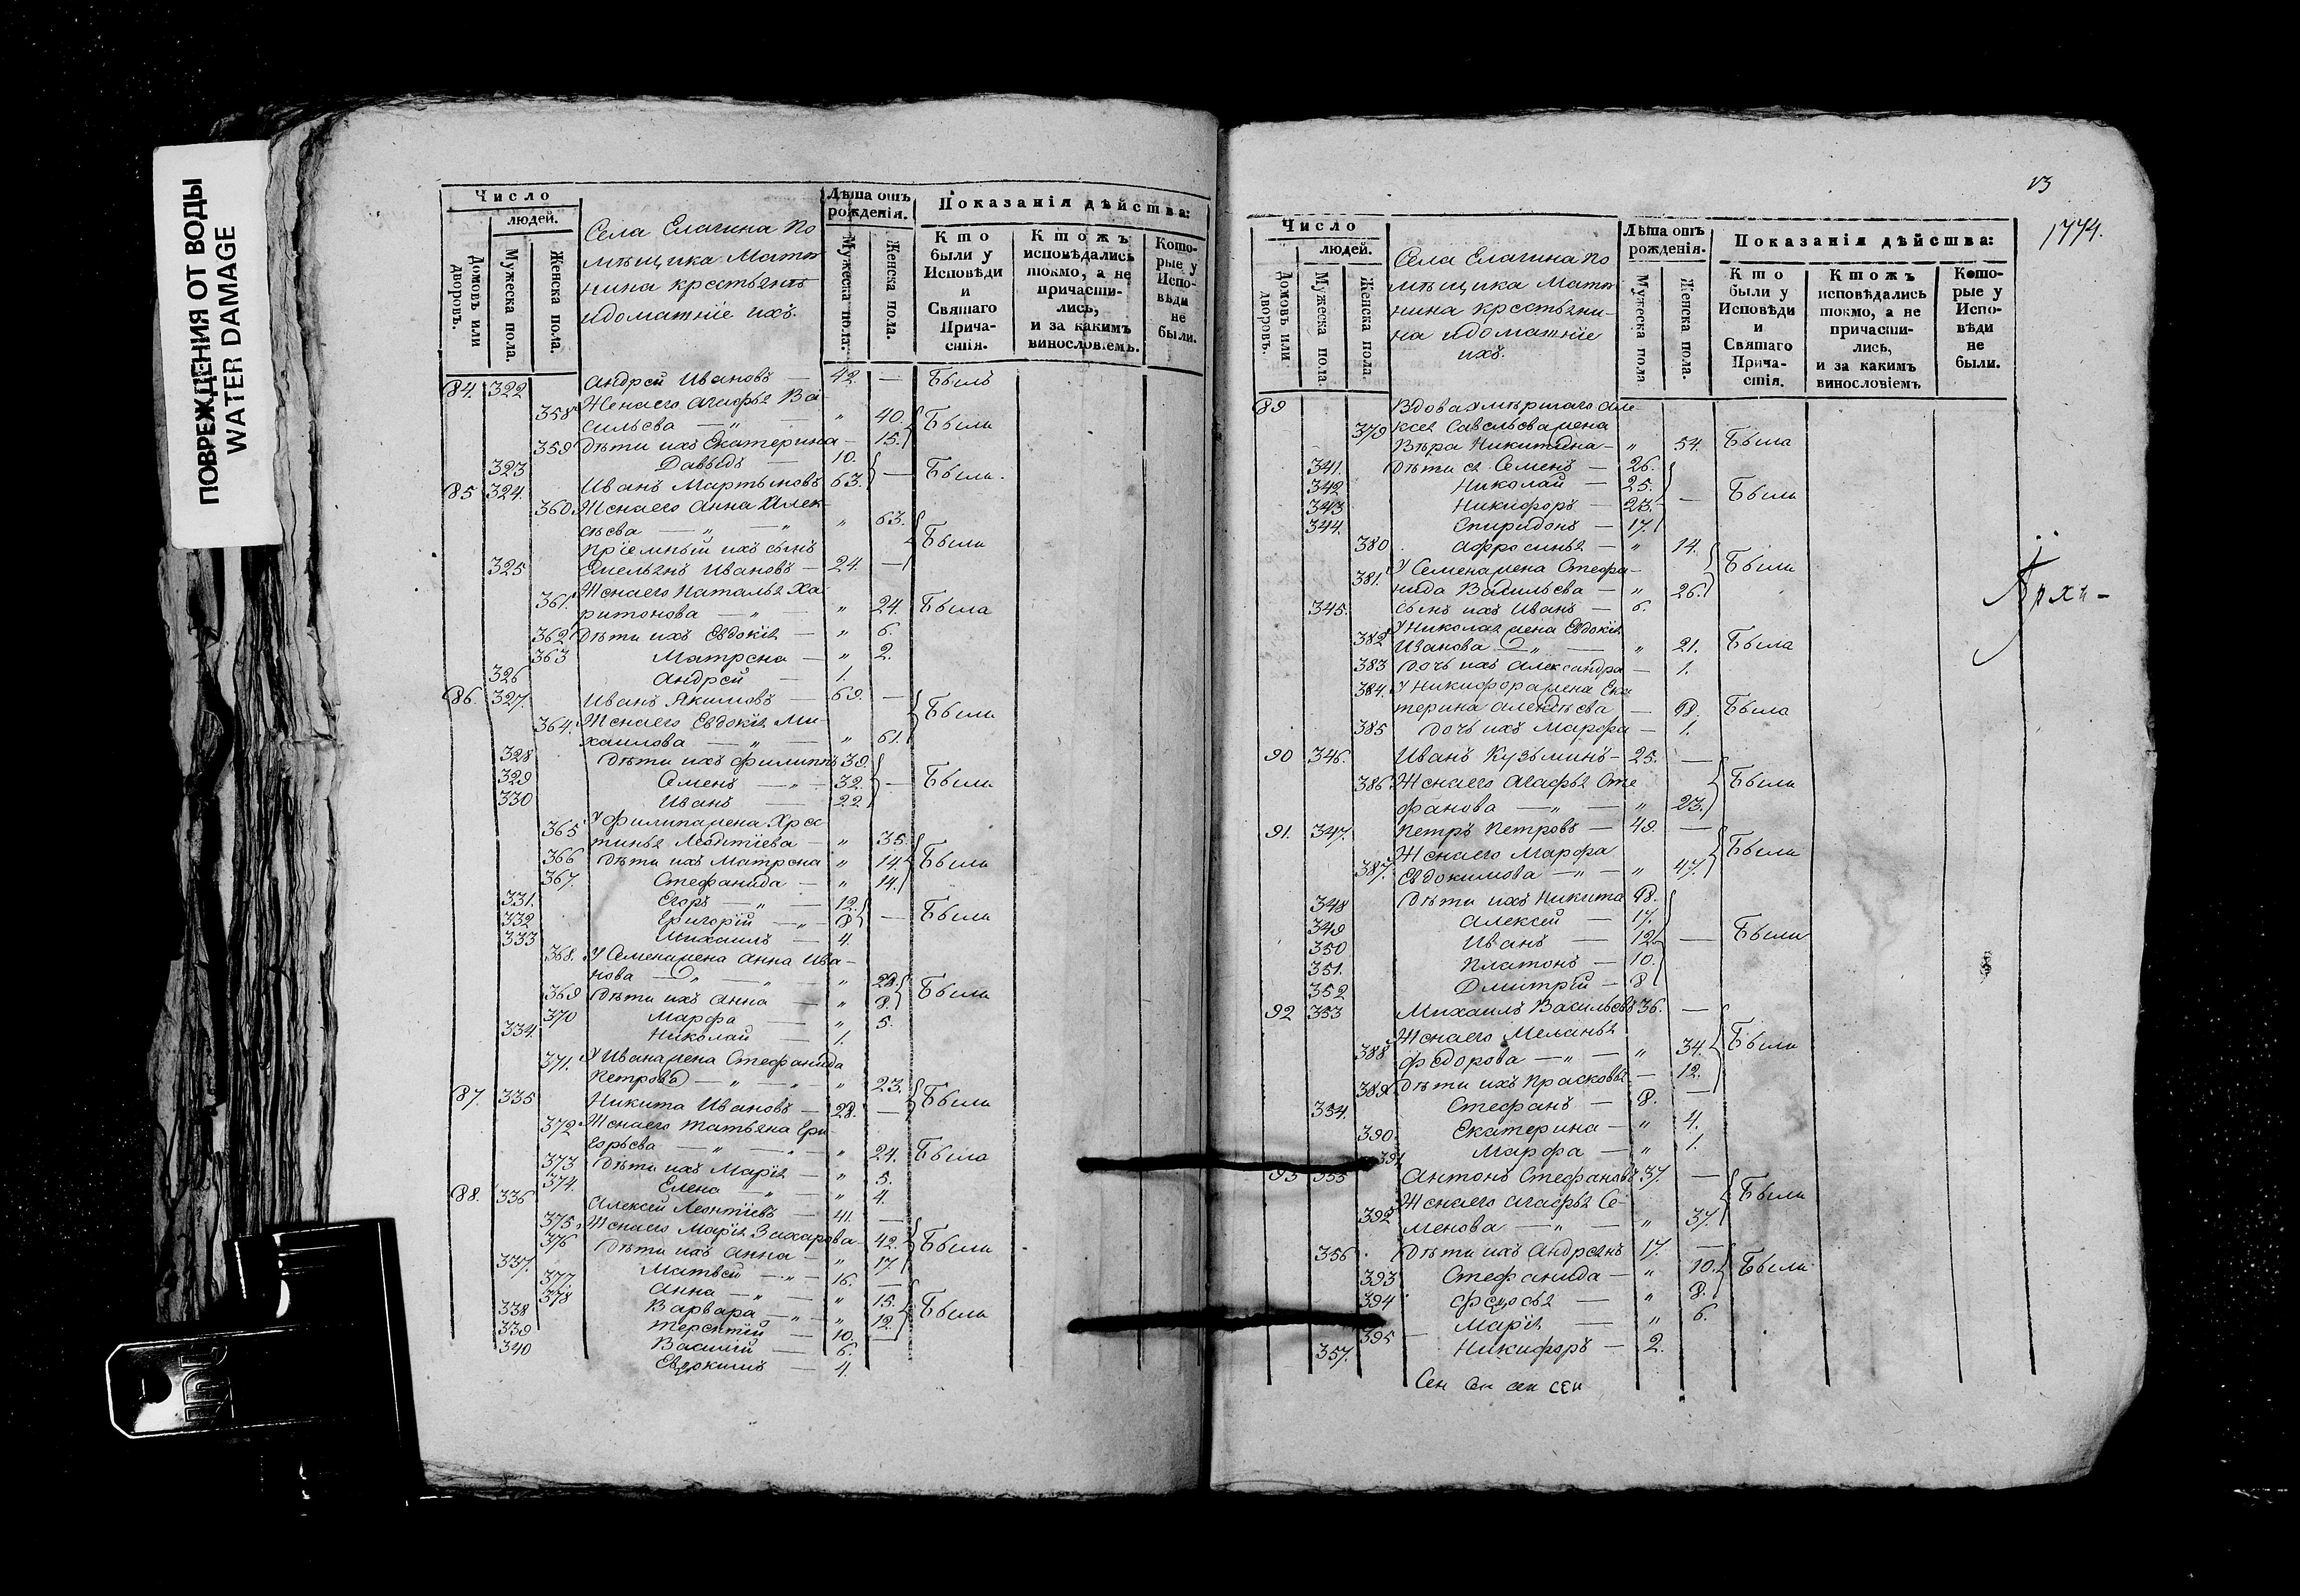 ПОВРЕЖДЕНИЯ ОТ ВОДЫ
WATER DAMAGE
Число
людей.
Домовъ или дворовъ.
Мужеска пола.
Женска пола.
Села Елагина по
мѣщика Матю
нина крестьянъ
идоматніе ихъ.
Лѣта отъ рожденія.
Мужеска пола.
Женска пола.
Показанія дѣйства:
Кто были у Исповѣди и Святаго Причастія.
Ктожъ исповѣдались токмо, а не причастились, и за какимъ винословіемъ.
Которые у Исповѣди не были.
84. 322 Андрей Ивановъ — 42. — Былъ
358 Женаего Агафья Ва
сильева — " — " 40. Были
359 Дѣти ихъ Екатерина — 15.
323 Давыдъ — 10. — Были.
85 324. Иванъ Мартыновъ 63.
360 Женаего Анна Алек
сѣева — " — " " 63. Были
Пріемный ихъ сынъ
325 Емельянъ Ивановъ — 24. —
361. Женаего Наталья Ха
ритонова — " — " 24. Была
362 Дѣти ихъ Евдокія — " 6.
363 Матрена — " 2.
326 Андрей — 1.
86. 327. Иванъ Якимовъ — 69. —
364. Женаего Евдокія Ми- Были
хаилова — " — " 61.
328 Дѣти ихъ Филиппъ 39.
329 Семенъ — " — 32. — Были
330 Иванъ — 22.
365 У Филипажена Хрес
тинья Леонтіева — " 35.
366 Дѣти ихъ Матрена " 14. Были
367. Стефанида — " 14.
331. Егоръ — " — 12.
332 Григорій — " — 8 — Были
333 Михаилъ — 4.
368. У Семенажена Анна Ива-
нова — " — " — " 28. Были
369 Дѣти ихъ Анна — " 8
370 Марфа — " 5.
334. Николай — 1.
371. У Иванажена Стефанида
Петрова — " — " — " 23. Были
87. 335 Никита Ивановъ — 28. —
372 Женаего Татьяна Гри
горьева — " — " — " 24. Была
373 Дѣти ихъ Марія — " 5.
374. Елена — " — " 4.
88. 336 Алексей Леонтіевъ — 41. —
375. Женаего Марія Захарова — 42. Были
376 Дѣти ихъ Анна — " 17.
337. Матвей — " — 16. —
377. Анна — " — " 15.
378 Варвара — " — " 12. Были
338 Терентій — 10. —
339 Василій — 6.
340 Евдокимъ — 4.
13
1774.
Число
людей.
Домовъ или дворовъ.
Мужеска пола.
Женска пола.
Села Елагина по
мѣщика Матю
нина крестьяни-
на идоматніе
ихъ.
Лѣта отъ рожденія.
Мужеска пола.
Женска пола.
Показанія дѣйства:
Кто были у Исповѣди и Святаго Причастія.
Ктожъ исповѣдались токмо, а не причастились, и за какимъ винословіемъ
Которые у Исповѣди не были.
89 Вдоваумѣршаго Але-
379 ксея Савельеважена
Вѣра Никитина — " 54. Была
341. Дѣти ея Семенъ — 26.
342 Николай — 25.
343 Никифоръ — 23. — Были
344. Спиридонъ — 17.
380 Афросинья — " 14.
381. У Семенажена Стефа- Были
нида Васильева — " 26.
345. сынъ ихъ Иванъ — 6.
382 У Николая жена Евдокія
Иванова — " — " 21. Была
383 Дочь ихъ Александра — 1.
384. У Никифоражена Ека
терина Алексѣева — 18. Была
385 Дочь ихъ Марфа — 1.
90 346. Иванъ Кузьминъ — 25. —
386 Женаего Агафья Сте Были
фанова — " — " 23.
91. 347. Петръ Петровъ — 49. —
387. Женаего Марфа Были
Евдокимова — " — " 47.
348 Дѣти ихъ Никита 18.
349 Алексей — 17.
350 Иванъ — 12. — Были
351. Платонъ — 10.
352 Дмитрій — 8
92 353 Михаилъ Васильевъ 36. —
388 Женаего Меланья Были
Федорова — " — " 34.
389 Дѣти ихъ Прасковья — 12.
354. Стефанъ — 8. —
390. Екатерина — " 4.
391 Марфа — " 1.
93 355 Антонъ Стефановъ 37. —
392 Женаего Агафья Се- Были
менова — " — " 37.
356 Дѣти ихъ Андреянъ 17. —
393 Стефанида — " 10. Были
394 Федосья — " 8.
395 Марія — " 6.
357. Никифоръ — 2.
Архи-